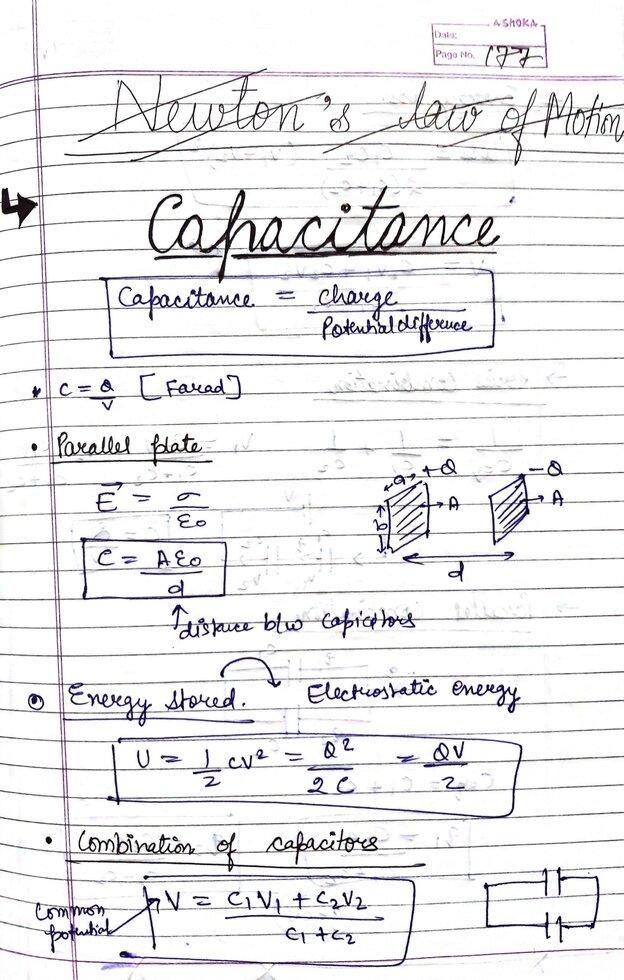 ASHOKA
Date:
Page No. 177
Newton's law of Motion
Capacitance
Capacitance = charge / Potential difference
* C = Q/V [Farad]
• Parallel plate
E⃗ = σ/ε0
a +Q -Q
b A A
C = Aε0/d
d
↑ distance b/w capicitors
Energy stored. Electrostatic energy
U = 1/2 CV² = Q²/2C = QV/2
• Combination of capacitors
Common potential
V = C1V1 + C2V2 / C1 + C2